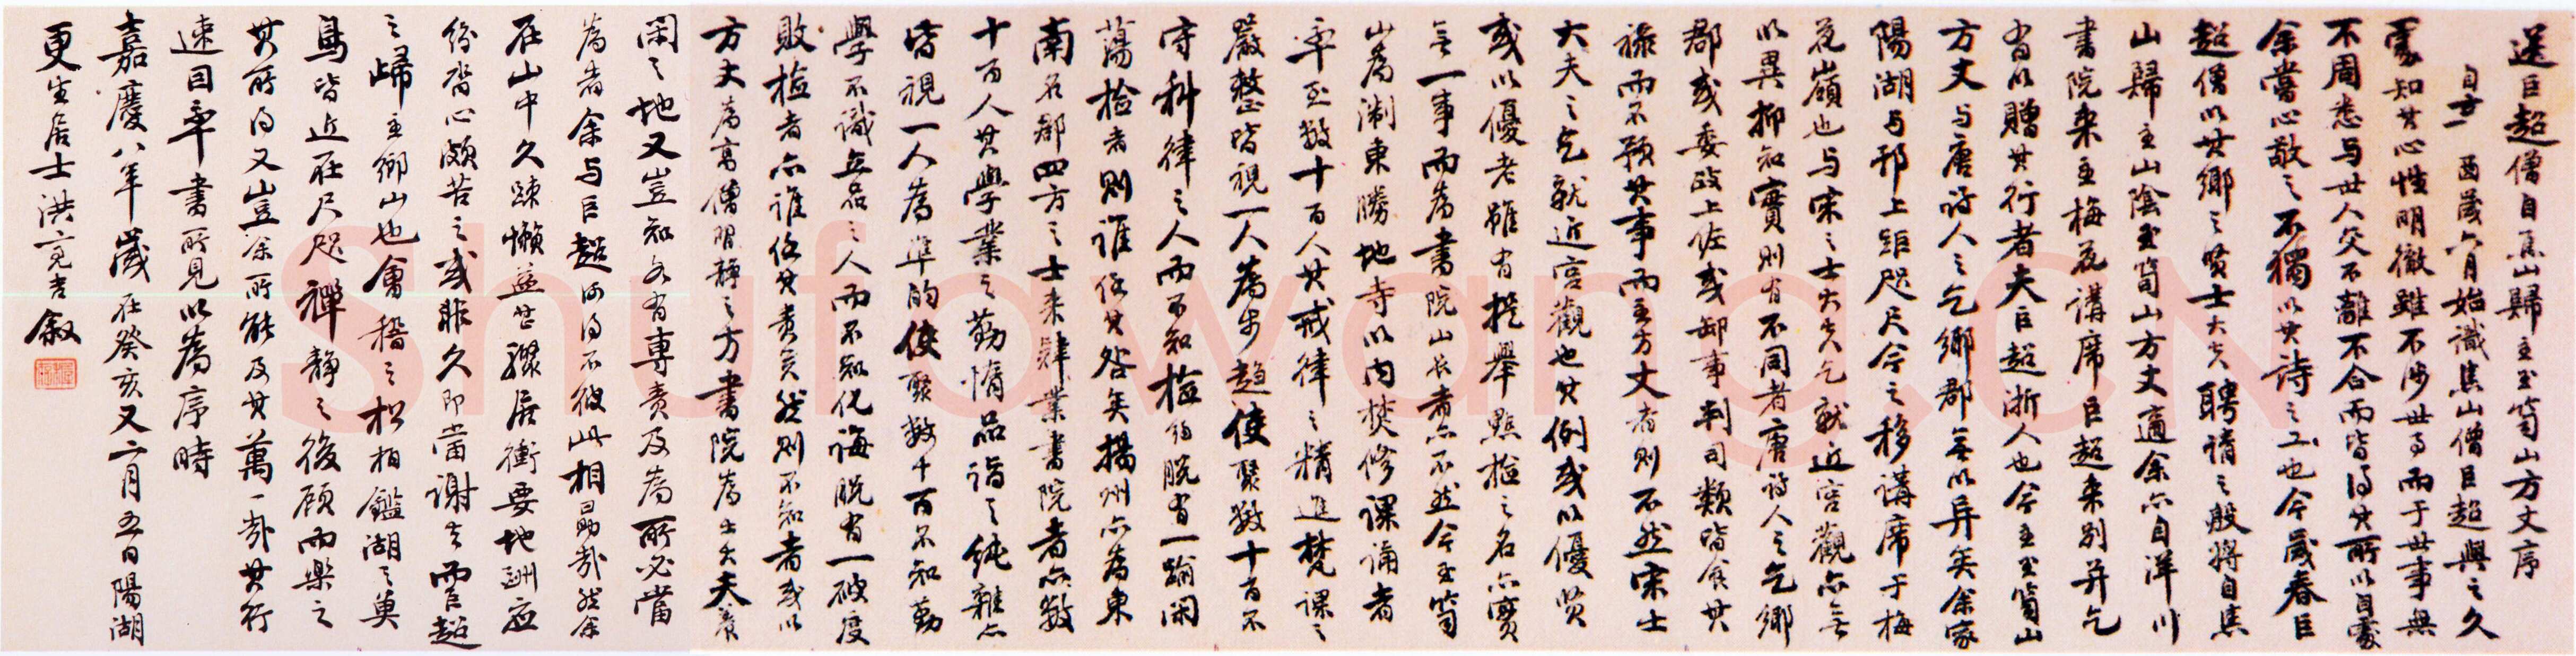 送巨超僧自焦山歸主玉笥山方丈序
自辛酉歲六月始識焦山僧巨超與之久
處知其心性明徹雖不涉世事而于世事無
不周悉与世人交不離不合而皆得其所以自處
余嘗心敬之不獨以其詩之工也今歲春巨
超僧以其鄉之賢士大夫聘請之殷將自焦
山歸主山陰玉笥山方丈適余亦自洋川
書院来主梅花講席巨超来別并乞
言以贈其行者夫巨超浙人也今主玉笥山
方丈与唐時人之乞鄉郡無以异矣余家
陽湖与邗上距咫尺今之移講席于梅
花嶺也与宋之士大夫乞就近宫觀亦無
以異抑知實則有不同者唐時人之乞鄉
郡或委政上佐或卸事判司類皆食其
禄而不預其事而主方丈者則不然宋士
大夫之乞就近宫觀也其例或以優賢
或以優老雖有提舉點檢之名亦實
無一事而為書院山长者亦不然今玉笥
山為淛東勝地寺以内焚修課誦者
率至數十百人其戒律之精進梵課之
嚴整皆視一人為步趨使聚數十百不
守科律之人而不知檢約脱有一踰閑
蕩检者則誰任其咎矣揚州亦為東
南名郡四方之士来肄業書院者亦數
十百人其學業之勤惰品詣之纯雜亦
皆視一人為準的使聚數十百不知勤
學不識立品之人而不知化誨脱有一破度
敗檢者亦誰任其責矣然則不知者或以
方丈為高僧習静之方書院為士大夫養
閑之地又豈知各有專責及為所必當
為者余与巨超向得不彼此相勗哉然余
在山中久踈懶益甚驟居衝要地酬应
纷沓心颇苦之或非久即當謝去而巨超
之歸主鄉山也會稽之松柏鑑湖之
鳥皆近在尺咫禪静之後顧而樂之
其所得又豈余所能及其萬一哉其行
速因率書所見以為序時
嘉慶八年歲在癸亥又二月五日陽湖
更生居士洪亮吉叙
Shufawang.CN